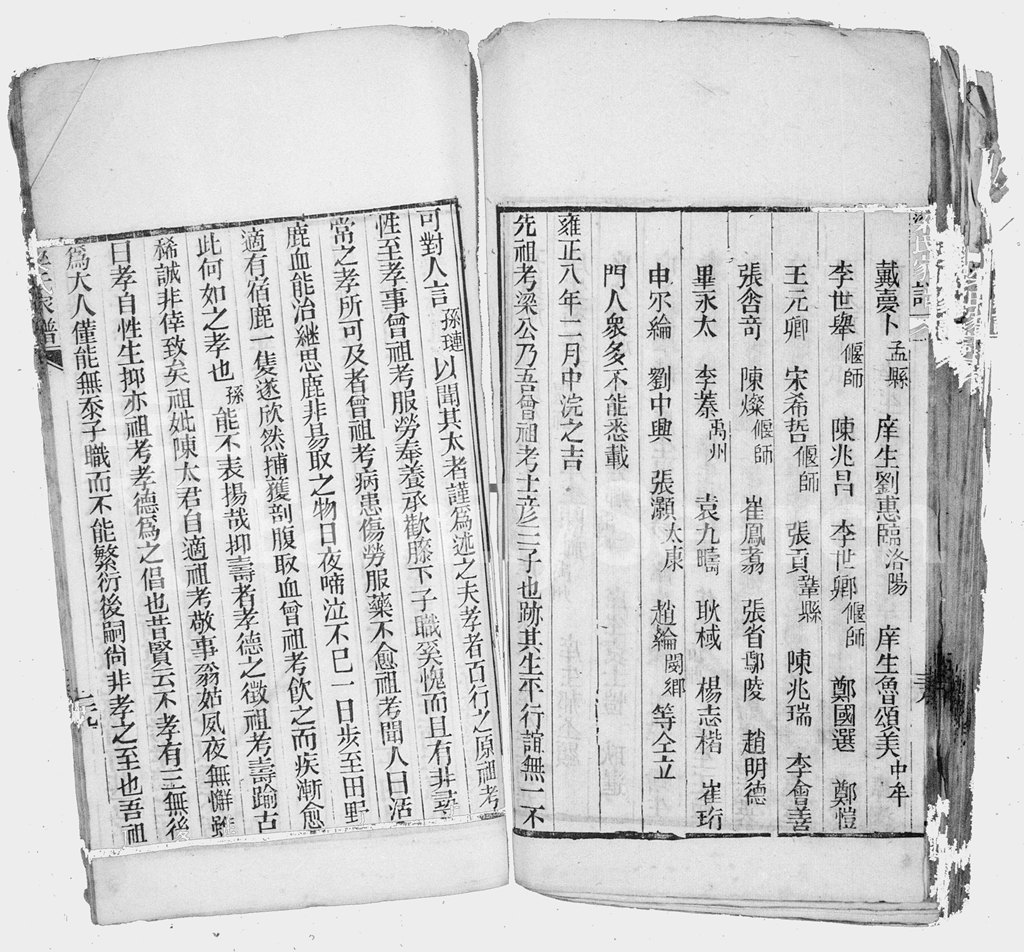 戴夢卜 孟縣 庠生劉惠臨 洛陽 庠生魯頌美 中牟
李世舉 偃師 陳兆昌 李世卿 偃師 鄭國選 鄭愷
王元卿 宋希哲 偃師 張貢 鞏縣 陳兆瑞 李會善
張含奇 陳燦 偃師 崔鳳翥 張省 鄢陵 趙明德
畢永太 李蓁 禹州 袁九疇 耿棫 楊志楷 崔珩
申尔綸 劉中興 張灝 太康 趙綸 閿鄉 等仝立
門人衆多不能悉載
雍正八年二月中浣之吉
先祖考梁公乃吾曾祖考士彥二子也跡其生平行誼無一不
可對人言孫璉以聞其太者謹為述之夫孝者百行之原祖考
性至孝事曾祖考服勞奉養承歡膝下子職奚愧而且有非尋
常之孝所可及者曾祖考病患傷勞服藥不愈祖考聞人曰活
鹿血能治繼思鹿非易取之物日夜啼泣不巳一日步至田野
適有宿鹿一隻遂欣然捕獲剖腹取血曾祖考飲之而疾漸愈
此何如之孝也孫能不表揚哉抑壽者孝德之徵祖考壽踰古
稀誠非倖致矣祖妣陳太君自適祖考敬事翁姑夙夜無懈雖
曰孝自性生抑亦祖考孝德為之倡也昔賢云不孝有三無後
為大人僅能無忝子職而不能繁衍後嗣尚非孝之至也吾祖